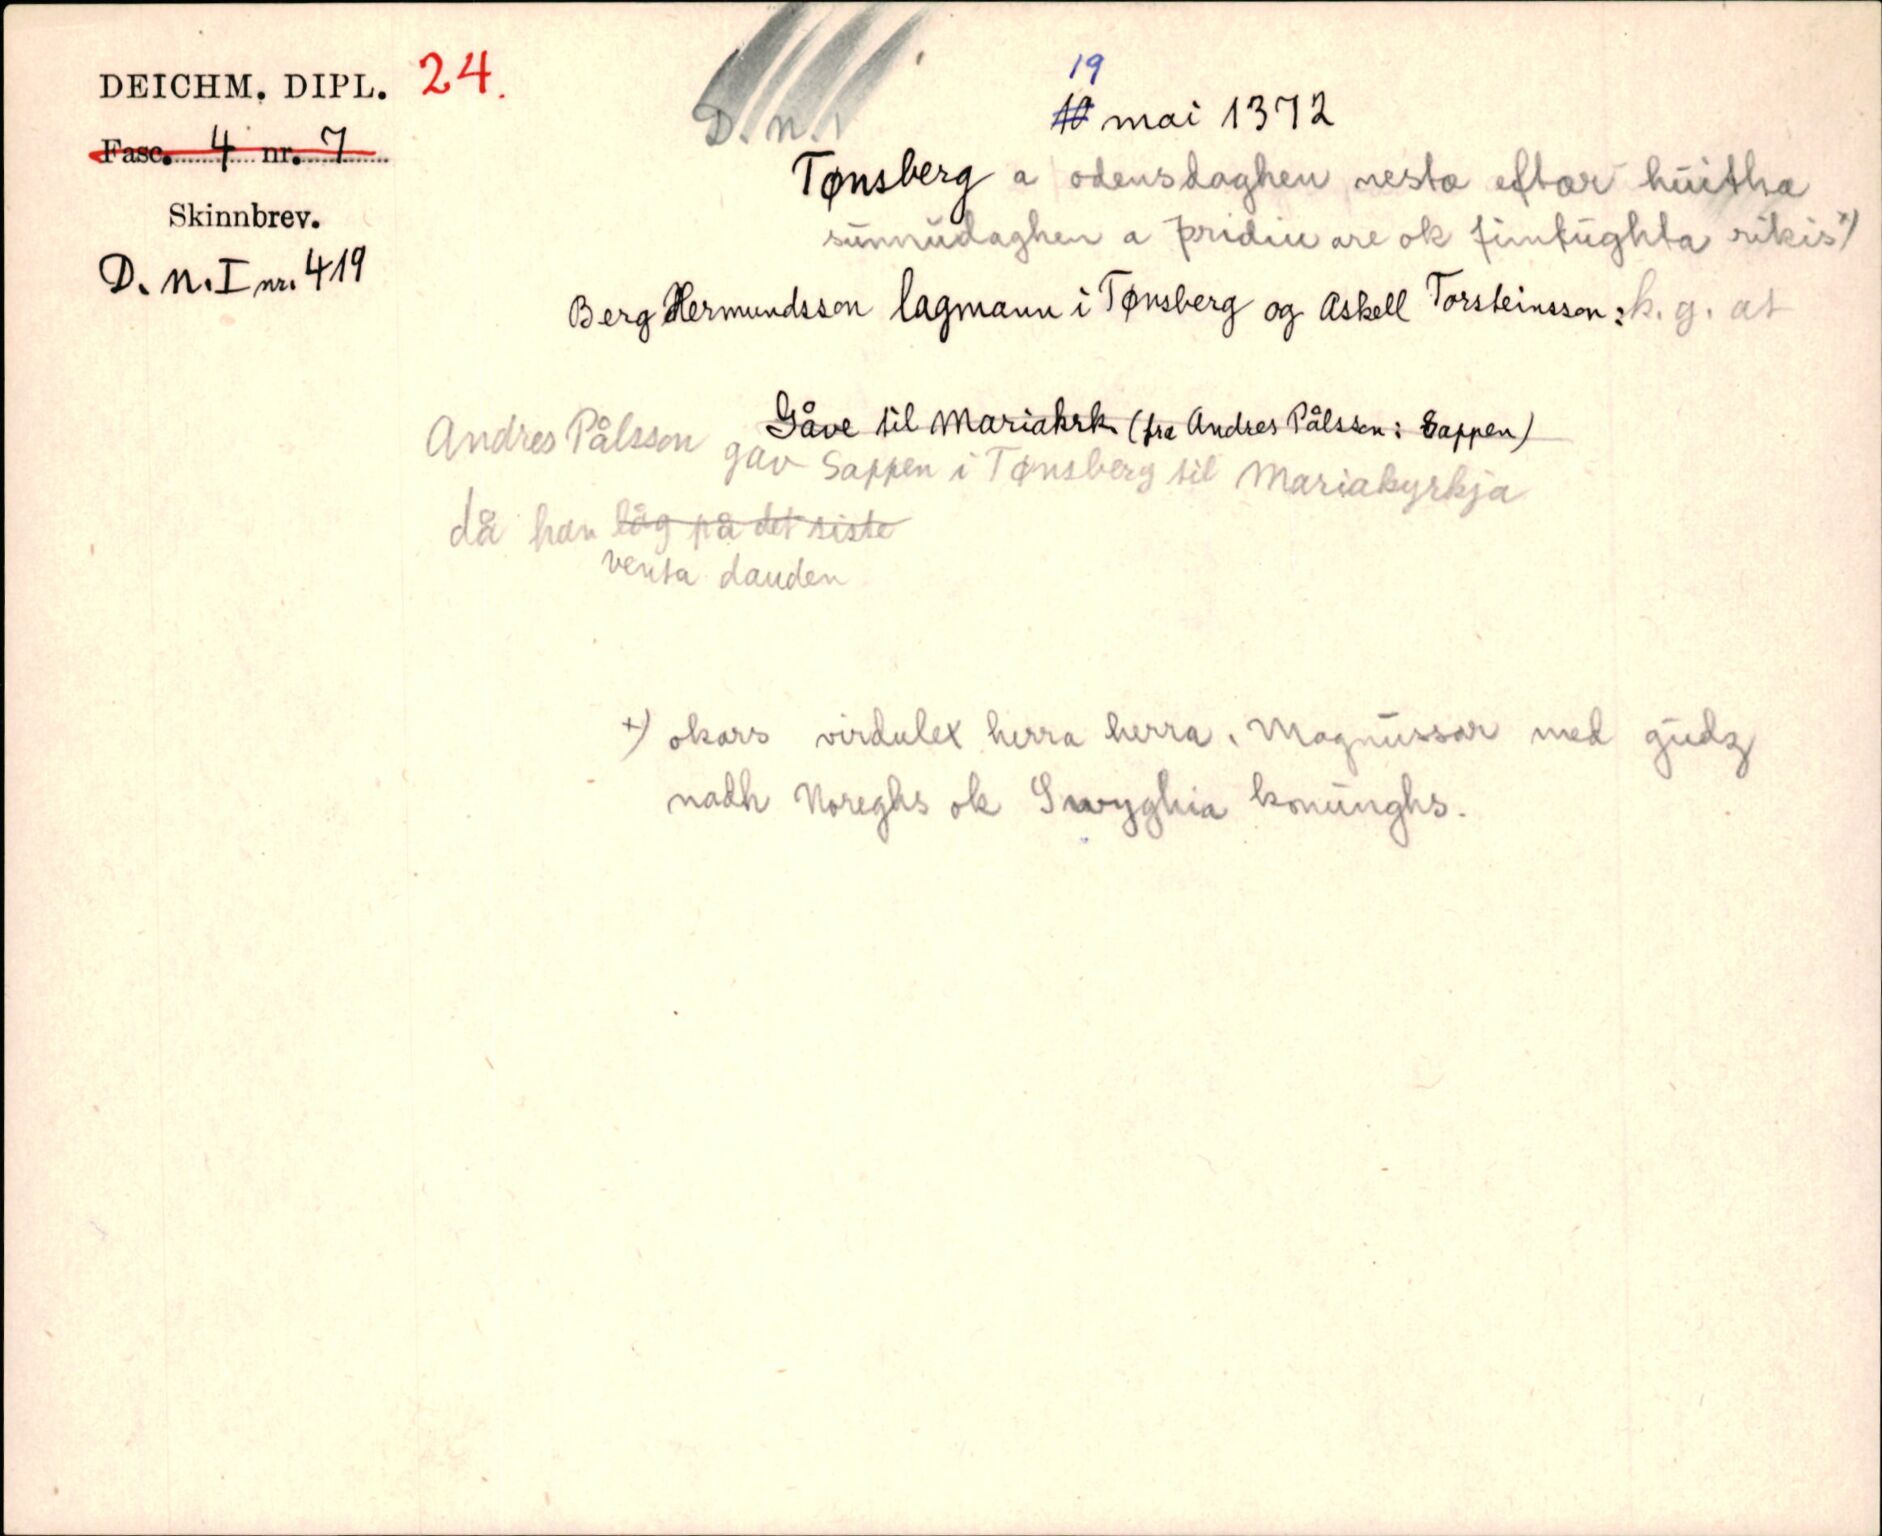 DEICHM. DIPL. 24.
Fasc. 4 nr. 7
Skinnbrev.
D. N. I nr. 419
D. N. I
19
mai 1372
Tønsberg a odensdaghen nesta eftær huitha
sunnudaghen a þridiu are ok fimtughta rikis x)
Berg Hermundsson lagmann i Tønsberg og Askell Torsteinsson: k. g. at
Gåve til Mariakrk. (fra Andres Pålsson: Sappen)
Andres Pålsson gav Sappen i Tønsberg til Mariakyrkja
då han låg på det siste
venta dauden
x) okars virdulex herra herra. Magnussar med gudz
nadh Noreghs ok Swyghia konunghs.